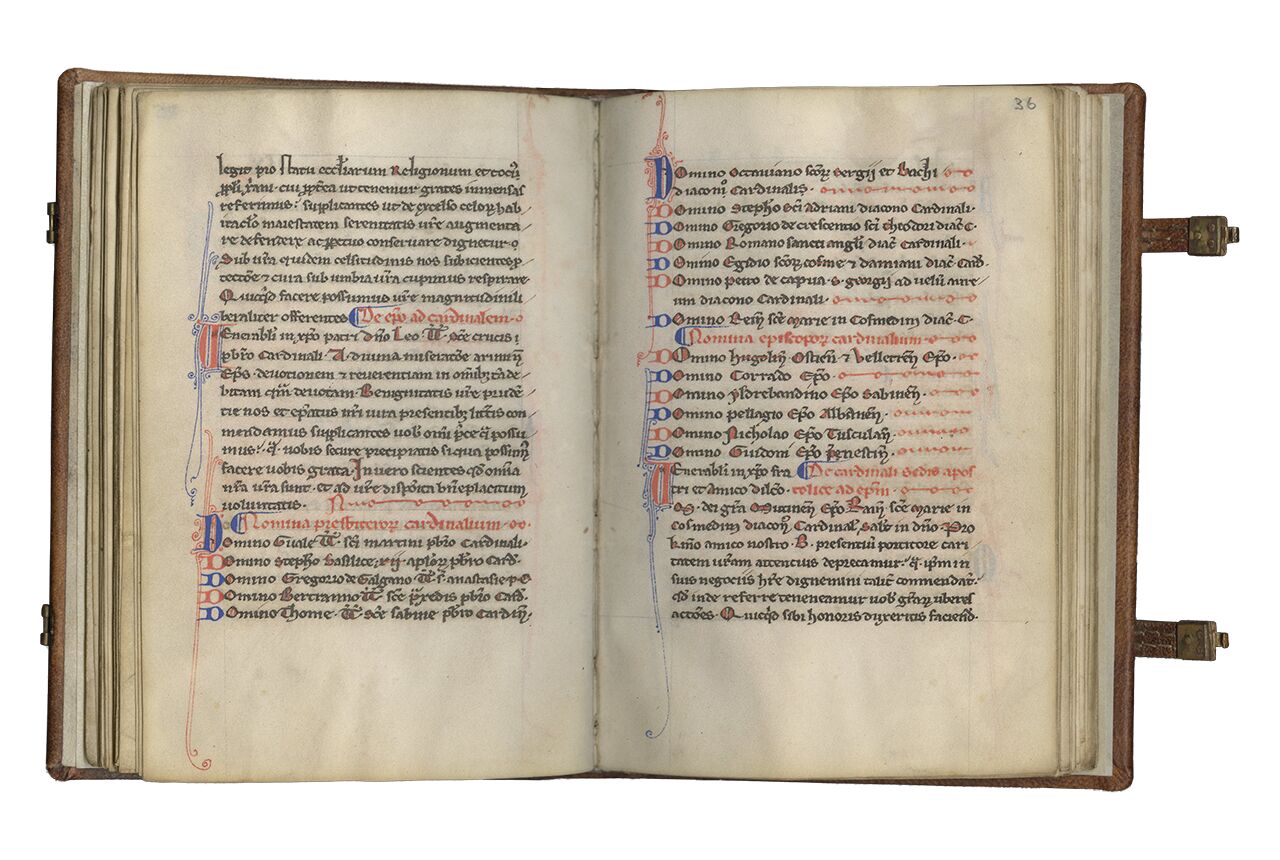 legit pro statu eccl̄iarum Religionum et toci᷒
ꝑpl̄i xp̄ani. cui ꝓpt̄ea ut tenemur grates inmensas
referimus: supplicantes ut de excelso celoꝝ hab
itac̄lo maiestatem serenitatis vr̄e augmenta
re defendere ac ꝑpetuo conservare dignetur.
Sub vr̄a quidem celsitudinis nos subicientes ꝓ
tectōe ⁊ cura sub umbra vr̄a cupimus respirare.
Quicq̄d facere possumus vr̄e magnitudinili
beraliter offerentes. De ep̄o ad cardinalem.
Venerabili in xp̄o patri dn̄o Leo. tt̄. sc̄e crucis i
pbr̄o Cardinali. A. divina miserac̄oe arimin̄
Ep̄s. devotionem ⁊ reverentiam in om̄ibꝫ tā de
bitam q̄m devotam. Benignitatis vr̄e prudē
tie nos et ep̄atus nr̄i iura presentibꝫ litt̄is con
mendamus supplicantes vob̄ om̄i p̄ce q̄ possu
mus. q̄. nobis secure precipiatis si qua possim᷒
facere vobis grata. In vero scientes qd̄ omnia
nr̄a vr̄a sunt. et ad vr̄e disposic̄a bn̄eplacitum
voluntatis.
Nomina presbiteroꝝ cardinalium.
Domino Guale tt̄. sc̄i martini pbr̄o Cardinali.
Domino Stepho Basilice. xij. aplōꝝ pbr̄o Card̄.
Domino Gregorio de Galgano tt̄. s̄. anastasie p. C
Domino Bertranno tt̄. sc̄e p̄xedis pbr̄o Card̄.
Domino Thome. tt̄. sc̄e sabine pbr̄o Cardin̄.
36
Domino Octaviano sc̄oꝝ Sergij et Bachi
diacon̄ Cardinalis.
Domino Stepho Sc̄i Adriani diacono Cardinali.
Domino Gregorio de crescentio sc̄i theodori diac̄ C.
Domino Romano sancti angli diac̄ Cardinali.
Domino Egidio sc̄oꝝ cosme ⁊ damiani diac̄ Card̄.
Domino petro de capua. s. georgij ad velū aure
um diacono Cardinali.
Domino Rein̄ sc̄e marie in Cosmedim diac̄. C.
Nomina episcopoꝝ cardinalium.
Domino hugolin̄ Ostien̄ ⁊ Velletren̄ Ep̄o.
Domino Corrado Ep̄o
Domino yldrebandino Ep̄o Sabinen̄.
Domino pellagio Ep̄o Albanen̄.
Domino Nicholao Ep̄o Tusculan̄.
Domino Guidoni Ep̄o p̄nestin̄.
Venerabili in xp̄o fra De cardinali sedis apos
tri et amico dilc̄o. tolice ad ep̄m.
OS. dei grā Ep̄o Rain̄ sc̄e marie in
cosmedim diacon᷒ Cardinal̄ Sal̄t in dn̄o. Pro
amico nostro. B. presentiū portitore cari
tatem vr̄am attencius deprecamur. q̄. ip̄m in
suis negociis hr̄e dignemini talit̄ commendat̄.
qd̄ inde referre teneneamur vob̄ grāꝝ uberes
actōes. Quicq̄d sibi honoris duxeritis faciend̄.